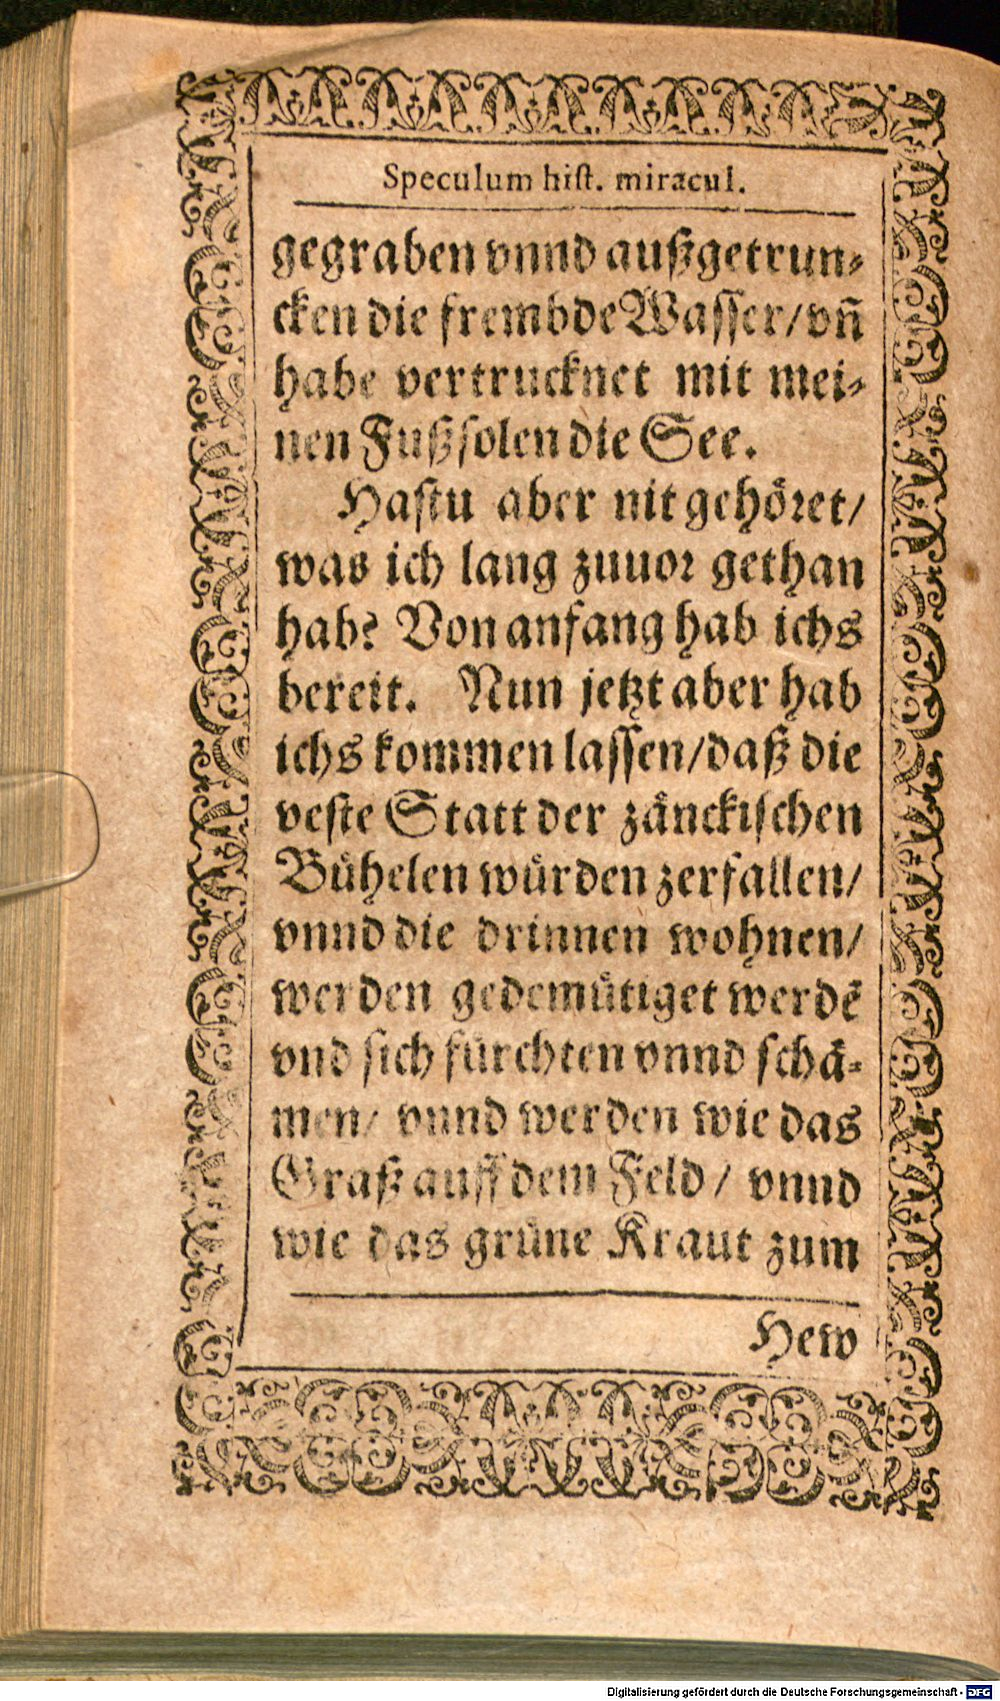 Speculum hist. miracul.
gegraben vnnd außgetrun-
cken die frembde Wasser/vñ
habe vertrucknet mit mei-
nen Fußsolen die See.
Hastu aber nit gehöret/
was ich lang zuuor gethan
hab? Von anfang hab ichs
bereit. Nun jetzt aber hab
ichs kommen lassen/daß die
veste Statt der zänckischen
Bühelen würden zerfallen/
vnnd die drinnen wohnen/
werden gedemütiget werdē
vnd sich fürchten vnnd schä-
men/ vnnd werden wie das
Graß auff dem Feld/ vnnd
wie das grüne Kraut zum
Hew
Digitalisierung gefördert durch die Deutsche Forschungsgemeinschaft - DFG